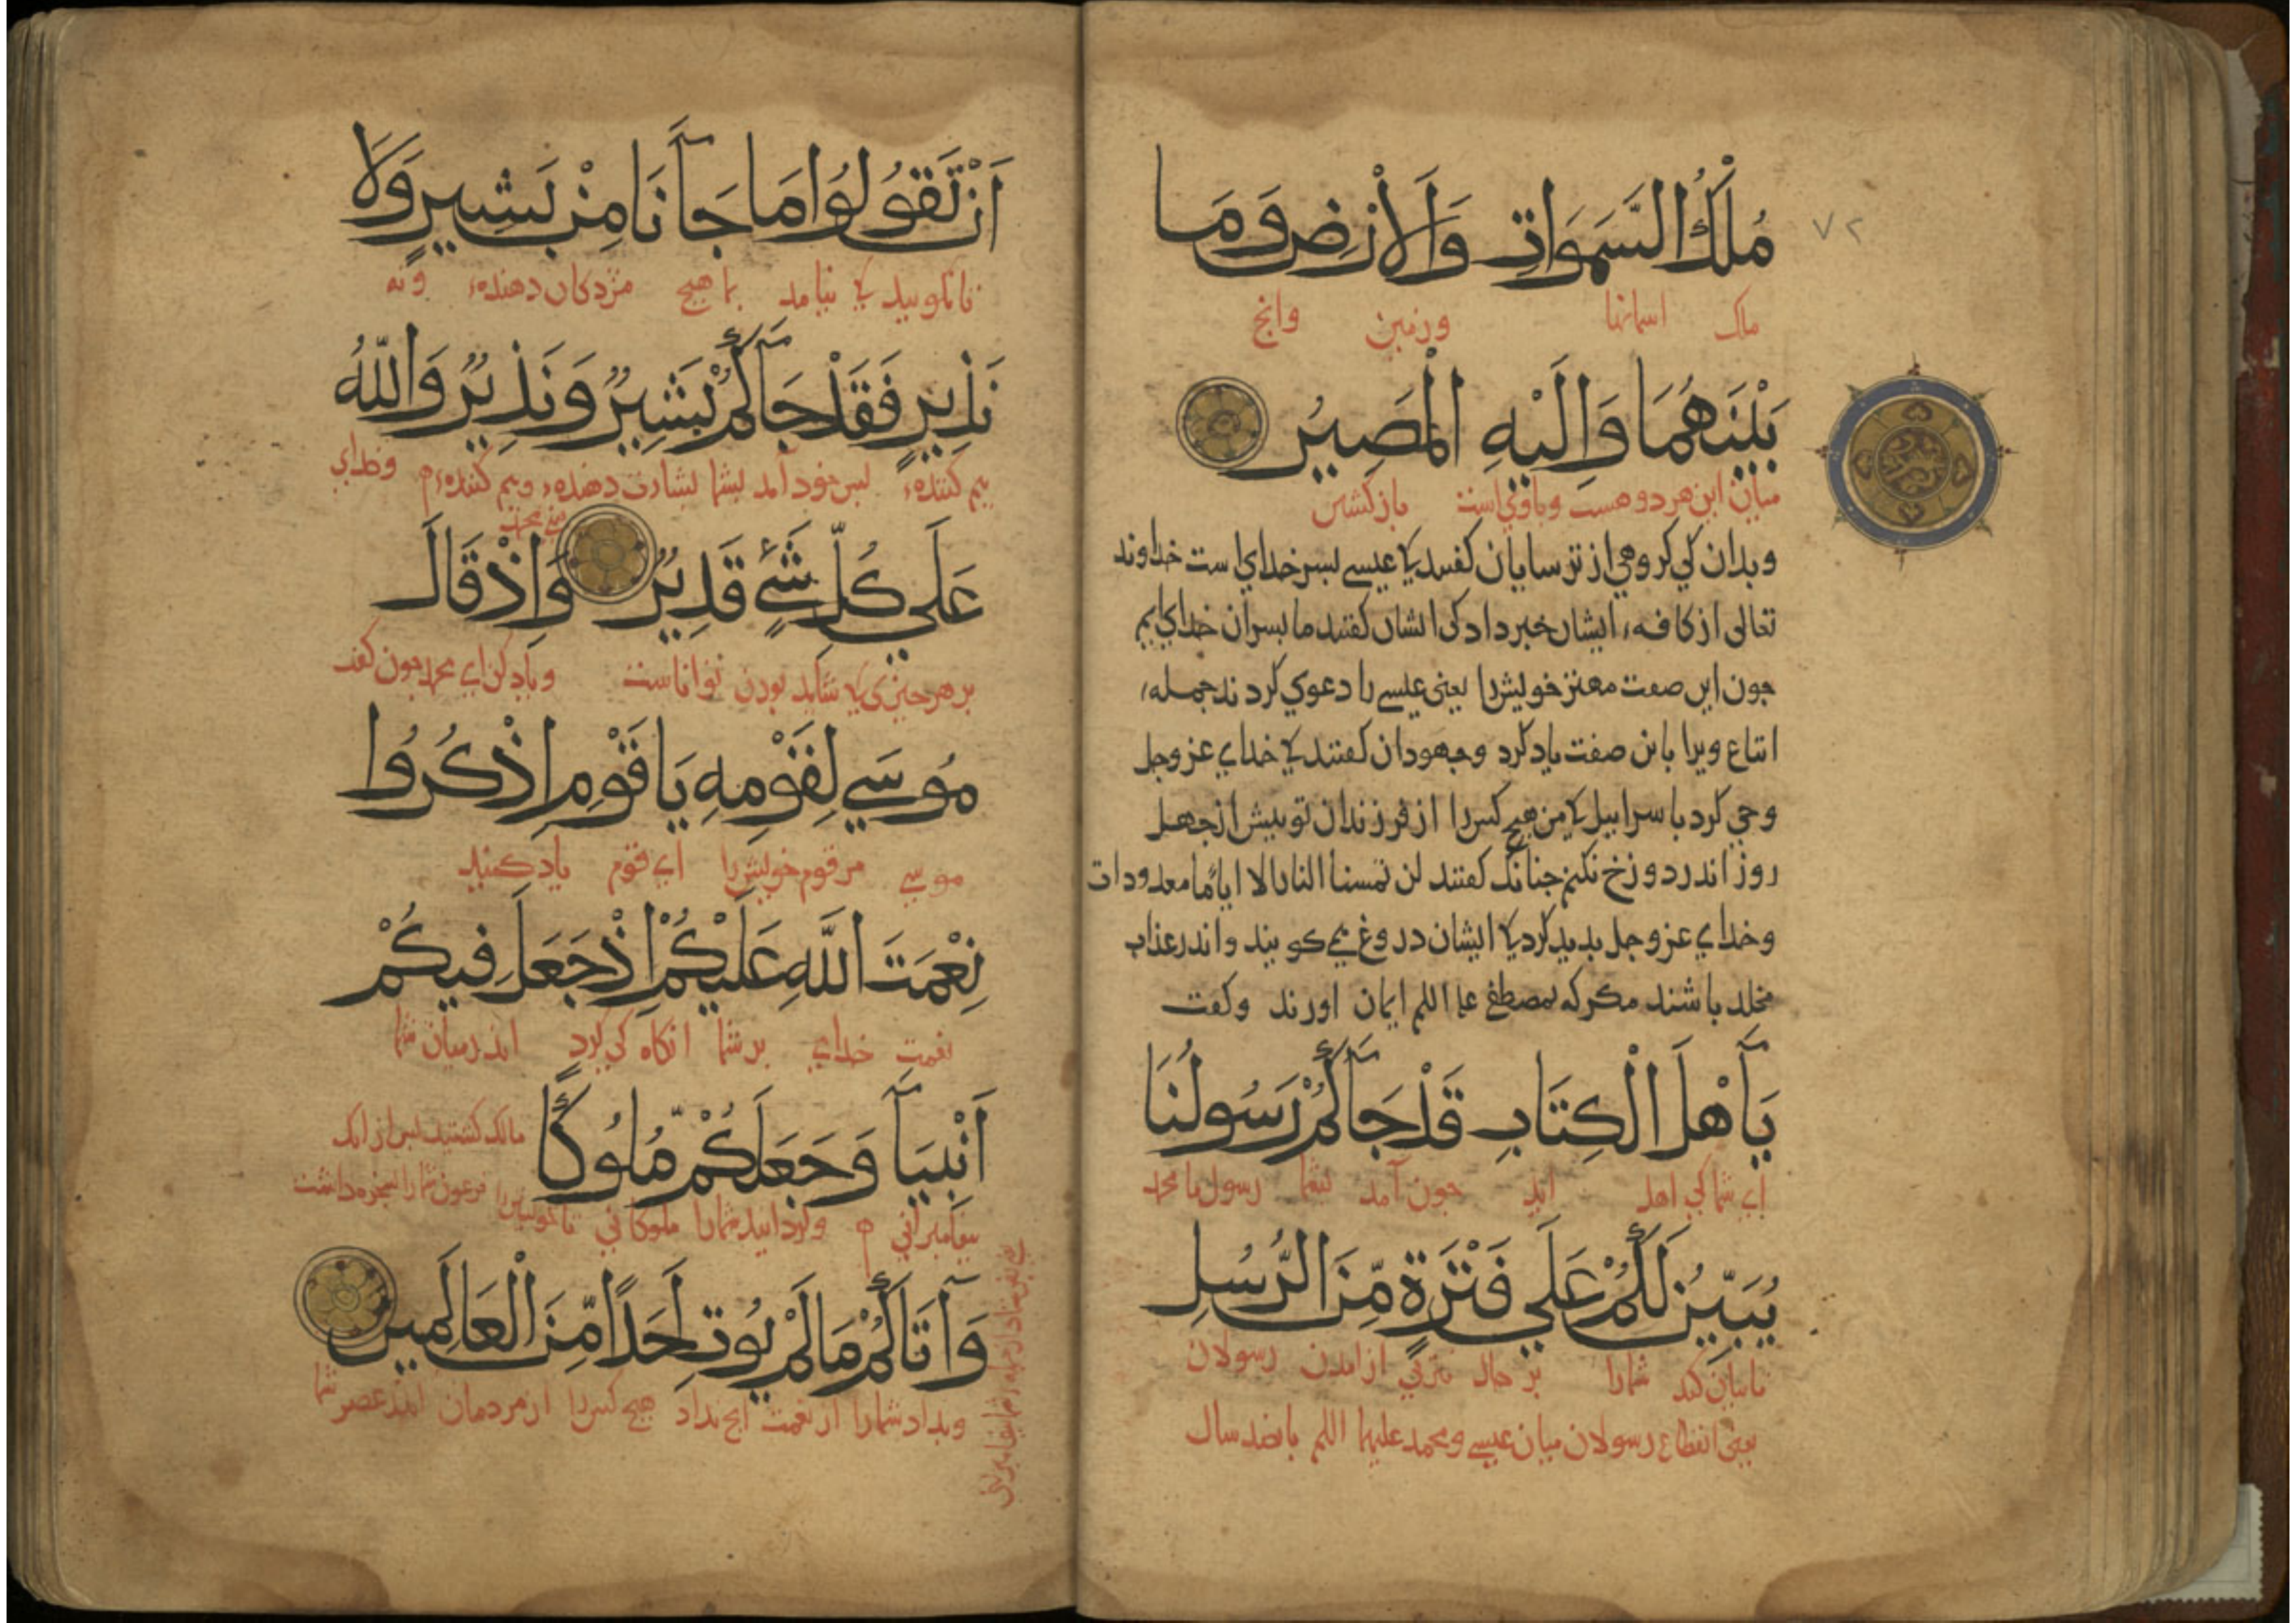 ٧٢
مُلْكُ السَّمَوَاتِ وَالْأَرْضِ وَمَا
ملک اسمانها وزمین وانج
بَيْنَهُمَا وَإِلَيْهِ الْمَصِيرُ
میان این هر دو هست وباوی است بازکشتن
وبدان کی کروهی از ترسایان کفتند کا عیسی بسر خدای است خداوند
تعالی از کافهٔ ایشان خبر داد کی ایشان کفتند ما بسران خدای ایم
جون این صفت مهتر خویش را یعنی عیسی را دعوی کردند جملهٔ
اتباع ویرا باین صفت یاد کرد وجهودان کفتند کا خدای عز وجل
وحی کرد باسراییل کا من هیج کس را از فرزندان تو بیش از جهل
روز اندر دوزخ نکنم جنانک کفتند لن تمسنا النار الا ایاما معدودات
وخدای عز وجل بدید کرد کا ایشان دروغ می کویند واندر عذاب
مخلد باشند مکر که بمصطفی علیه السلم ایمان اورند وکفت
يَآأَهْلَ الْكِتَابِ قَدْ جَآكُمْ رَسُولُنَا
ای شما کی اهل اید جون آمد بشما رسول ما محمد
يُبَيِّنُ لَكُمْ عَلَي فَتْرَةٍ مِّنَ الرُّسُلِ
تا بیان کند شما را بر حال از امدن رسولان
یعنی انقطاع رسولان میان عیسی ومحمد علیهما السلم بانصد سال
اَنْ تَقُولُوا مَا جَآنَا مِنْ بَشِيرٍ وَلَا
تا نکویید کا نیامد بما هیج مژدکان دهندهٔ ونه
نَذِيرٍ فَقَدْ جَآكُمْ بَشِيرٌ وَنَذِيرٌ وَاللّهُ
بیم کنندهٔ بس خود آمد بشما بشارت دهندهٔ وبیم کنندهٔ وخدای
عَلَي كُلِّ شَيْءٍ قَدِيرٌ وَإِذْ قَالَ
بر هر جیزی کا شاید بودن تواناست ویاد کن ای محمد جون کفت
مُوسَي لِقَوْمِهِ يَا قَوْمِ اذْكُرُوا
موسی مر قوم خویش را ای قوم یاد کنید
نِعْمَتَ اللَّهِ عَلَيْكُمْ إِذْ جَعَلَ فِيكُمْ
نعمت خدای بر شما انکاه کی کرد اندر میان شما
اَنْبِيَآ وَجَعَلَكُمْ مُّلُوكًا
مالک کشتید بس از انک
فرعون شما را سخره داشت
بیغامبرانی وکردانید شما را ملوکانی
وَآتَاكُمْ مَا لَمْ يُوتِ اَحَدًا مِّنَ الْعَالَمِينَ
وبداد شما را از نعمت انج نداد هیج کس را از مردمان اندر عصر شما